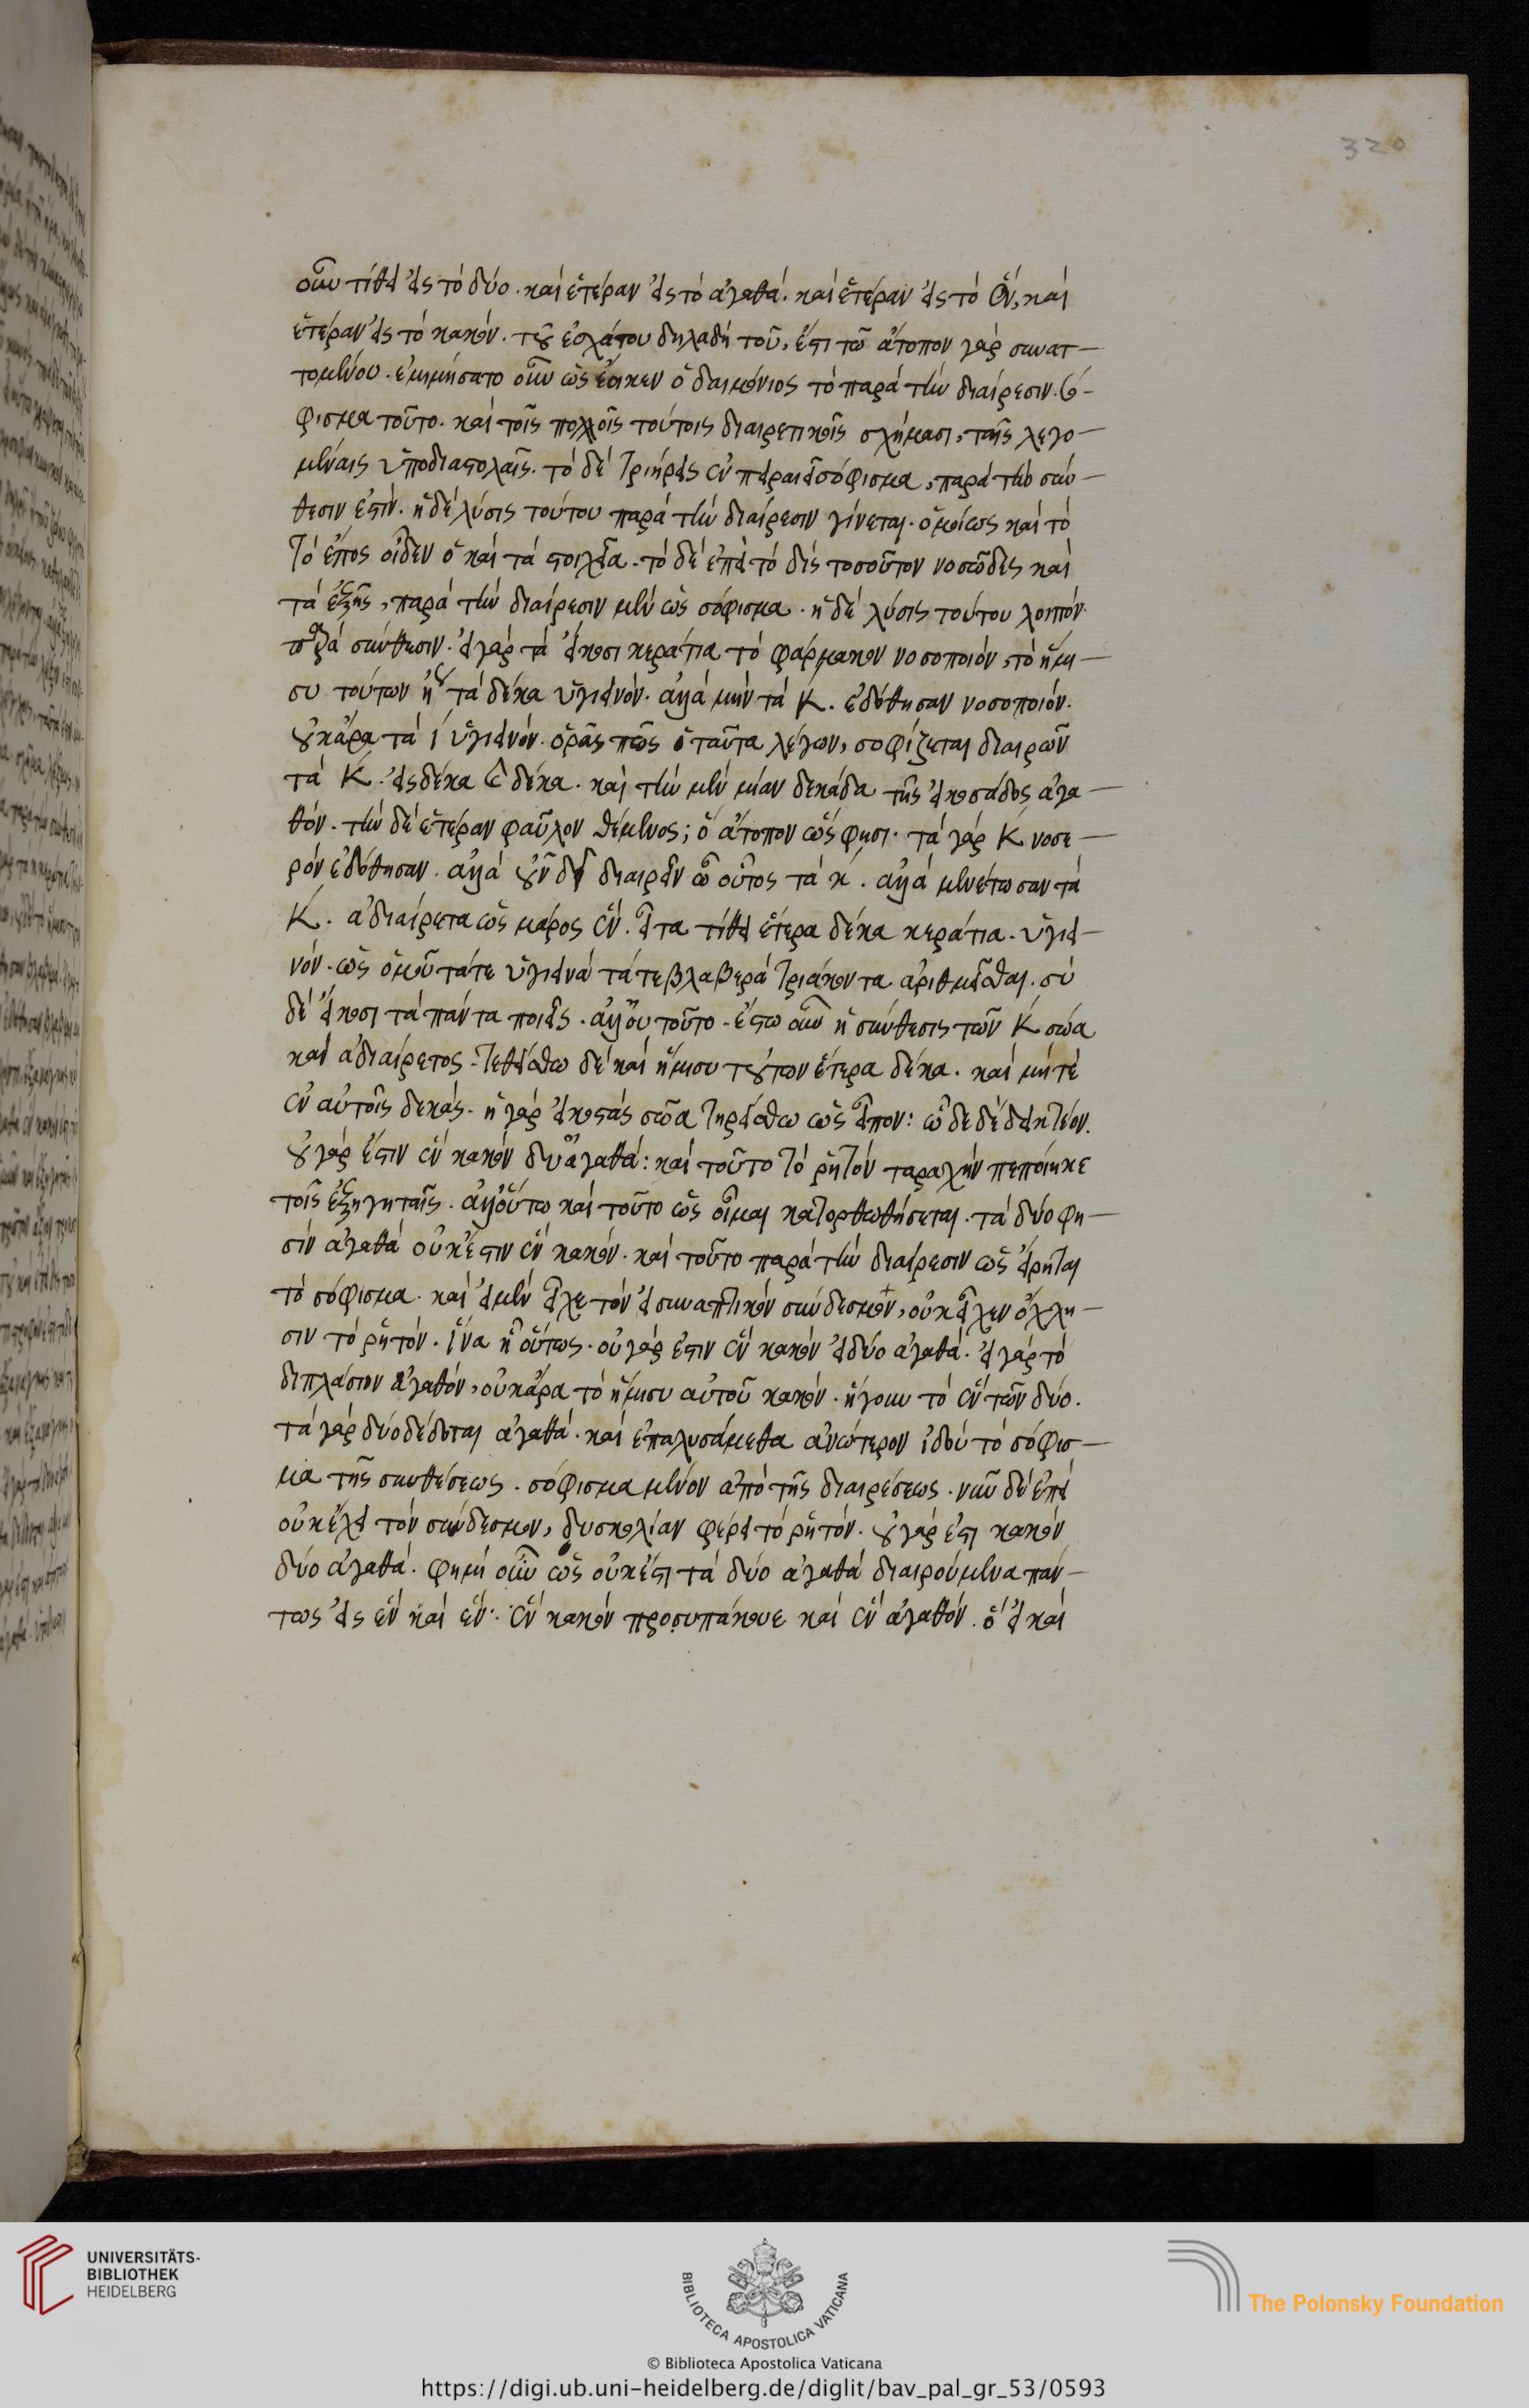 320
οὖν τίθει εἰς τὸ δύο. καὶ ἑτέραν εἰς τὸ ἀγαθά. καὶ ἑτέραν εἰς τὸ ἕν, καὶ
ἑτέραν εἰς τὸ κακόν. τοῦ ἐσχάτου δηλαδὴ τοῦ, ἔστι τῶ ἄτοπον γὰρ συνατ-
τομένου. ἐμιμήσατο οὖν ὡς ἔοικεν ὁ δαιμόνιος τὸ παρὰ τὴν διαίρεσιν. σό-
φισμα τοῦτο. καὶ τοῖς πολλοῖς τούτοις διαιρετικοῖς σχήμασι, ταῖς λεγο-
μέναις ὑποδιαστολαῖς. τὸ δὲ τριήρεις ἐν πειραιεῖ σόφισμα, παρὰ τὴν σύν-
θεσιν ἐστίν. ἡ δὲ λύσις τούτου παρὰ τὴν διαίρεσιν γίνεται. ὁμοίως καὶ τὸ
τὸ ἔπος οἶδεν ὁ καὶ τὰ στοιχεῖα. τὸ δὲ ἐπεὶ τὸ δὶς τοσοῦτον νοσῶδες καὶ
τὰ ἑξῆς, παρὰ τὴν διαίρεσιν μὲν ὡς σόφισμα. ἡ δὲ λύσις τούτου λοιπόν.
παρὰ σύνθεσιν. εἰ γὰρ τὰ εἴκοσι κεράτια τὸ φάρμακον νοσοποιόν, τὸ ἥμι-
συ τούτων ἢ τὰ δέκα ὑγιεινόν. ἀλλὰ μὴν τὰ κ. ἐδόθησαν νοσοποιόν.
οὐκ ἄρα τὰ ί ὑγιεινόν. ὁρᾶς πῶς ὁ ταῦτα λέγων, σοφίζεται διαιρῶν
τὰ κ. εἰς δέκα καὶ δέκα. καὶ τὴν μὲν μίαν δεκάδα τῆς εἰκοσάδος ἀγα-
θόν. τὴν δὲ ἑτέραν φαῦλον θέμενος; ὃ ἄτοπον ὥς φησι. τὰ γὰρ κ νοσε-
ρὸν ἐδόθησαν. ἀλλὰ οὖν δεῖ διαιρεῖν ὦ οὗτος τὰ κ. ἀλλὰ μενέτωσαν τὰ
κ. ἀδιαίρετα ὡς μέρος ἕν. εἶτα τίθει ἕτερα δέκα κεράτια. ὑγιει-
νόν. ὡς ὁμοῦ τά τε ὑγιεινὰ τά τε βλαβερὰ τριάκοντα ἀριθμεῖσθαι. σὺ
δὲ εἴκοσι τὰ πάντα ποιεῖς. ἀλλ' οὐ τοῦτο. ἔστω οὖν ἡ σύνθεσις τῶν κ σώα
καὶ ἀδιαίρετος. τεθείσθω δὲ καὶ ἥμισυ τούτων ἕτερα δέκα. καὶ μήτε
ἐν αὐτοῖς δεκάς. ἡ γὰρ εἰκοστὰς σῶα τηρείσθω ὡς εἶπον: ὧδε δὲ δεικτέον.
οὐ γάρ ἐστιν ἓν κακὸν δυ' ἀγαθά: καὶ τοῦτο τὸ ῥητὸν ταραχὴν πεποίηκε
τοῖς ἐξηγηταῖς. ἀλλ' οὕτω καὶ τοῦτο ὡς οἶμαι κατορθωθήσεται. τὰ δύο φη-
σὶν ἀγαθὰ οὐκ ἔστιν ἓν κακόν. καὶ τοῦτο παρὰ τὴν διαίρεσιν ὡς εἴρηται
τὸ σόφισμα. καὶ εἰ μὲν εἶχε τὸν εἰ συναπτικὸν σύνδεσμον, οὐκ εἶχεν ὄχλη-
σιν τὸ ῥητόν. ἵνα ἦ οὕτως. οὐ γάρ ἐστιν ἓν κακὸν εἰ δύο ἀγαθά. εἰ γὰρ τὸ
διπλάσιον ἀγαθόν, οὐκ ἄρα τὸ ἥμισυ αὐτοῦ κακόν. ἤγουν τὸ ἓν τῶν δύο.
τὰ γὰρ δύο δέδοται ἀγαθά. καὶ ἐπαλυσάμεθα ἀνώτερον ἰδοὺ τὸ σόφισ-
μα τῆς συνθέσεως. σόφισμα μένον ἀπὸ τῆς διαιρέσεως. νῦν δὲ ἐπεὶ
οὐκ ἔχει τὸν σύνδεσμον, δυσκολίαν φέρει τὸ ῥητόν. οὐ γὰρ ἔστι κακὸν
δύο ἀγαθά. φημὶ οὖν ὡς οὐκ ἔστι τὰ δύο ἀγαθὰ διαιρούμενα πάν-
τως εἰς ἓν καὶ ἕν. ἓν κακὸν προσυπάκουε καὶ ἓν ἀγαθόν. ὃ εἰ καὶ
UNIVERSITÄTS-
BIBLIOTHEK
HEIDELBERG
BIBLIOTECA APOSTOLICA VATICANA
The Polonsky Foundation
© Biblioteca Apostolica Vaticana
https://digi.ub.uni-heidelberg.de/diglit/bav_pal_gr_53/0593